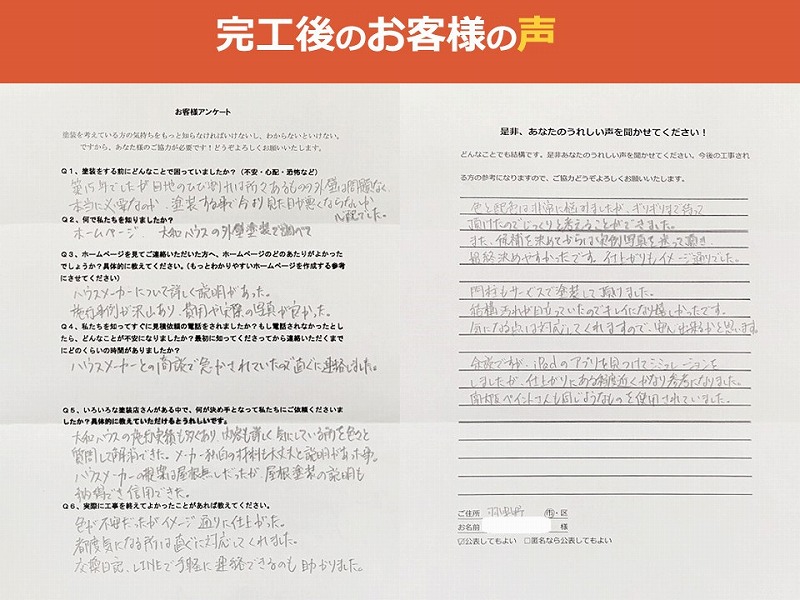 完工後のお客様の声
お客様アンケート
塗装を考えている方の気持ちをもっと知らなければいけないし、わからないといけない。
ですから、あなた様のご協力が必要です！どうぞよろしくお願いいたします。
Q1、塗装をする前にどんなことで困っていましたか？（不安・心配・恐怖など）
築15年でしたが目地のひび割れは所々あるものの外壁は問題なく、
本当に必要なのか、塗装する事で今より見た目が悪くならないか
心配でした。
Q2、何で私たちを知りましたか？
ホームページ、大和ハウスの外壁塗装で調べて
Q3、ホームページを見てご連絡いただいた方へ、ホームページのどのあたりがよかった
でしょうか？具体的に教えてください。（もっとわかりやすいホームページを作成する参考
にさせてください）
ハウスメーカーについて詳しく説明があった。
施行事例が沢山あり、費用や実際の写真が良かった。
Q4、私たちを知ってすぐに見積依頼の電話をされましたか？もし電話されなかったとし
たら、どんなことが不安になりましたか？最初に知ってくださってから連絡いただくまで
にどのくらいの時間がありましたか？
ハウスメーカーとの商談で急かされていたので直ぐに連絡しました。
Q5、いろいろな塗装店さんがある中で、何が決め手となって私たちにご依頼くださいま
したか？具体的に教えていただけるとうれしいです。
大和ハウスの施行実績も多くあり、内容も詳しく気にしている所を色々と
質問して解消できた。メーカー独自の材料も大丈夫と説明があった事。
ハウスメーカーの提案は屋根無しだったが、屋根塗装の説明も
納得でき信用できた。
Q6、実際に工事を終えてよかったことがあれば教えてください。
色が不安だったがイメージ通りに仕上がった。
都度気になる所は直ぐに対応してくれました。
交換日記、LINEで手軽に連絡できるのも助かりました。
是非、あなたのうれしい声を聞かせてください！
どんなことでも結構です。是非あなたのうれしい声を聞かせてください。今後の工事され
る方の参考になりますので、ご協力どうぞよろしくお願いいたします。
色と配分は非常に悩みましたが、ギリギリまで待って
頂けたのでじっくりと考えることができました。
また、候補を決めてからは実例写真を送って頂き、
最終決めやすかったです。仕上がりもイメージ通りでした。
門柱もサービスで塗装して頂けました。
結構汚れが目立っていたのでキレイになり嬉しかったです。
気になる点は対応してくれますので、安心出来るかと思います。
余談ですが、iPadのアプリを見つけてシミュレーションを
しましたが、仕上がりにある程度近くかなり参考になりました。
ペイントさんも同じようなものを使用されていました。
ご住所 羽曳野 市・区
お名前 様
☑公表してもよい □匿名なら公表してもよい